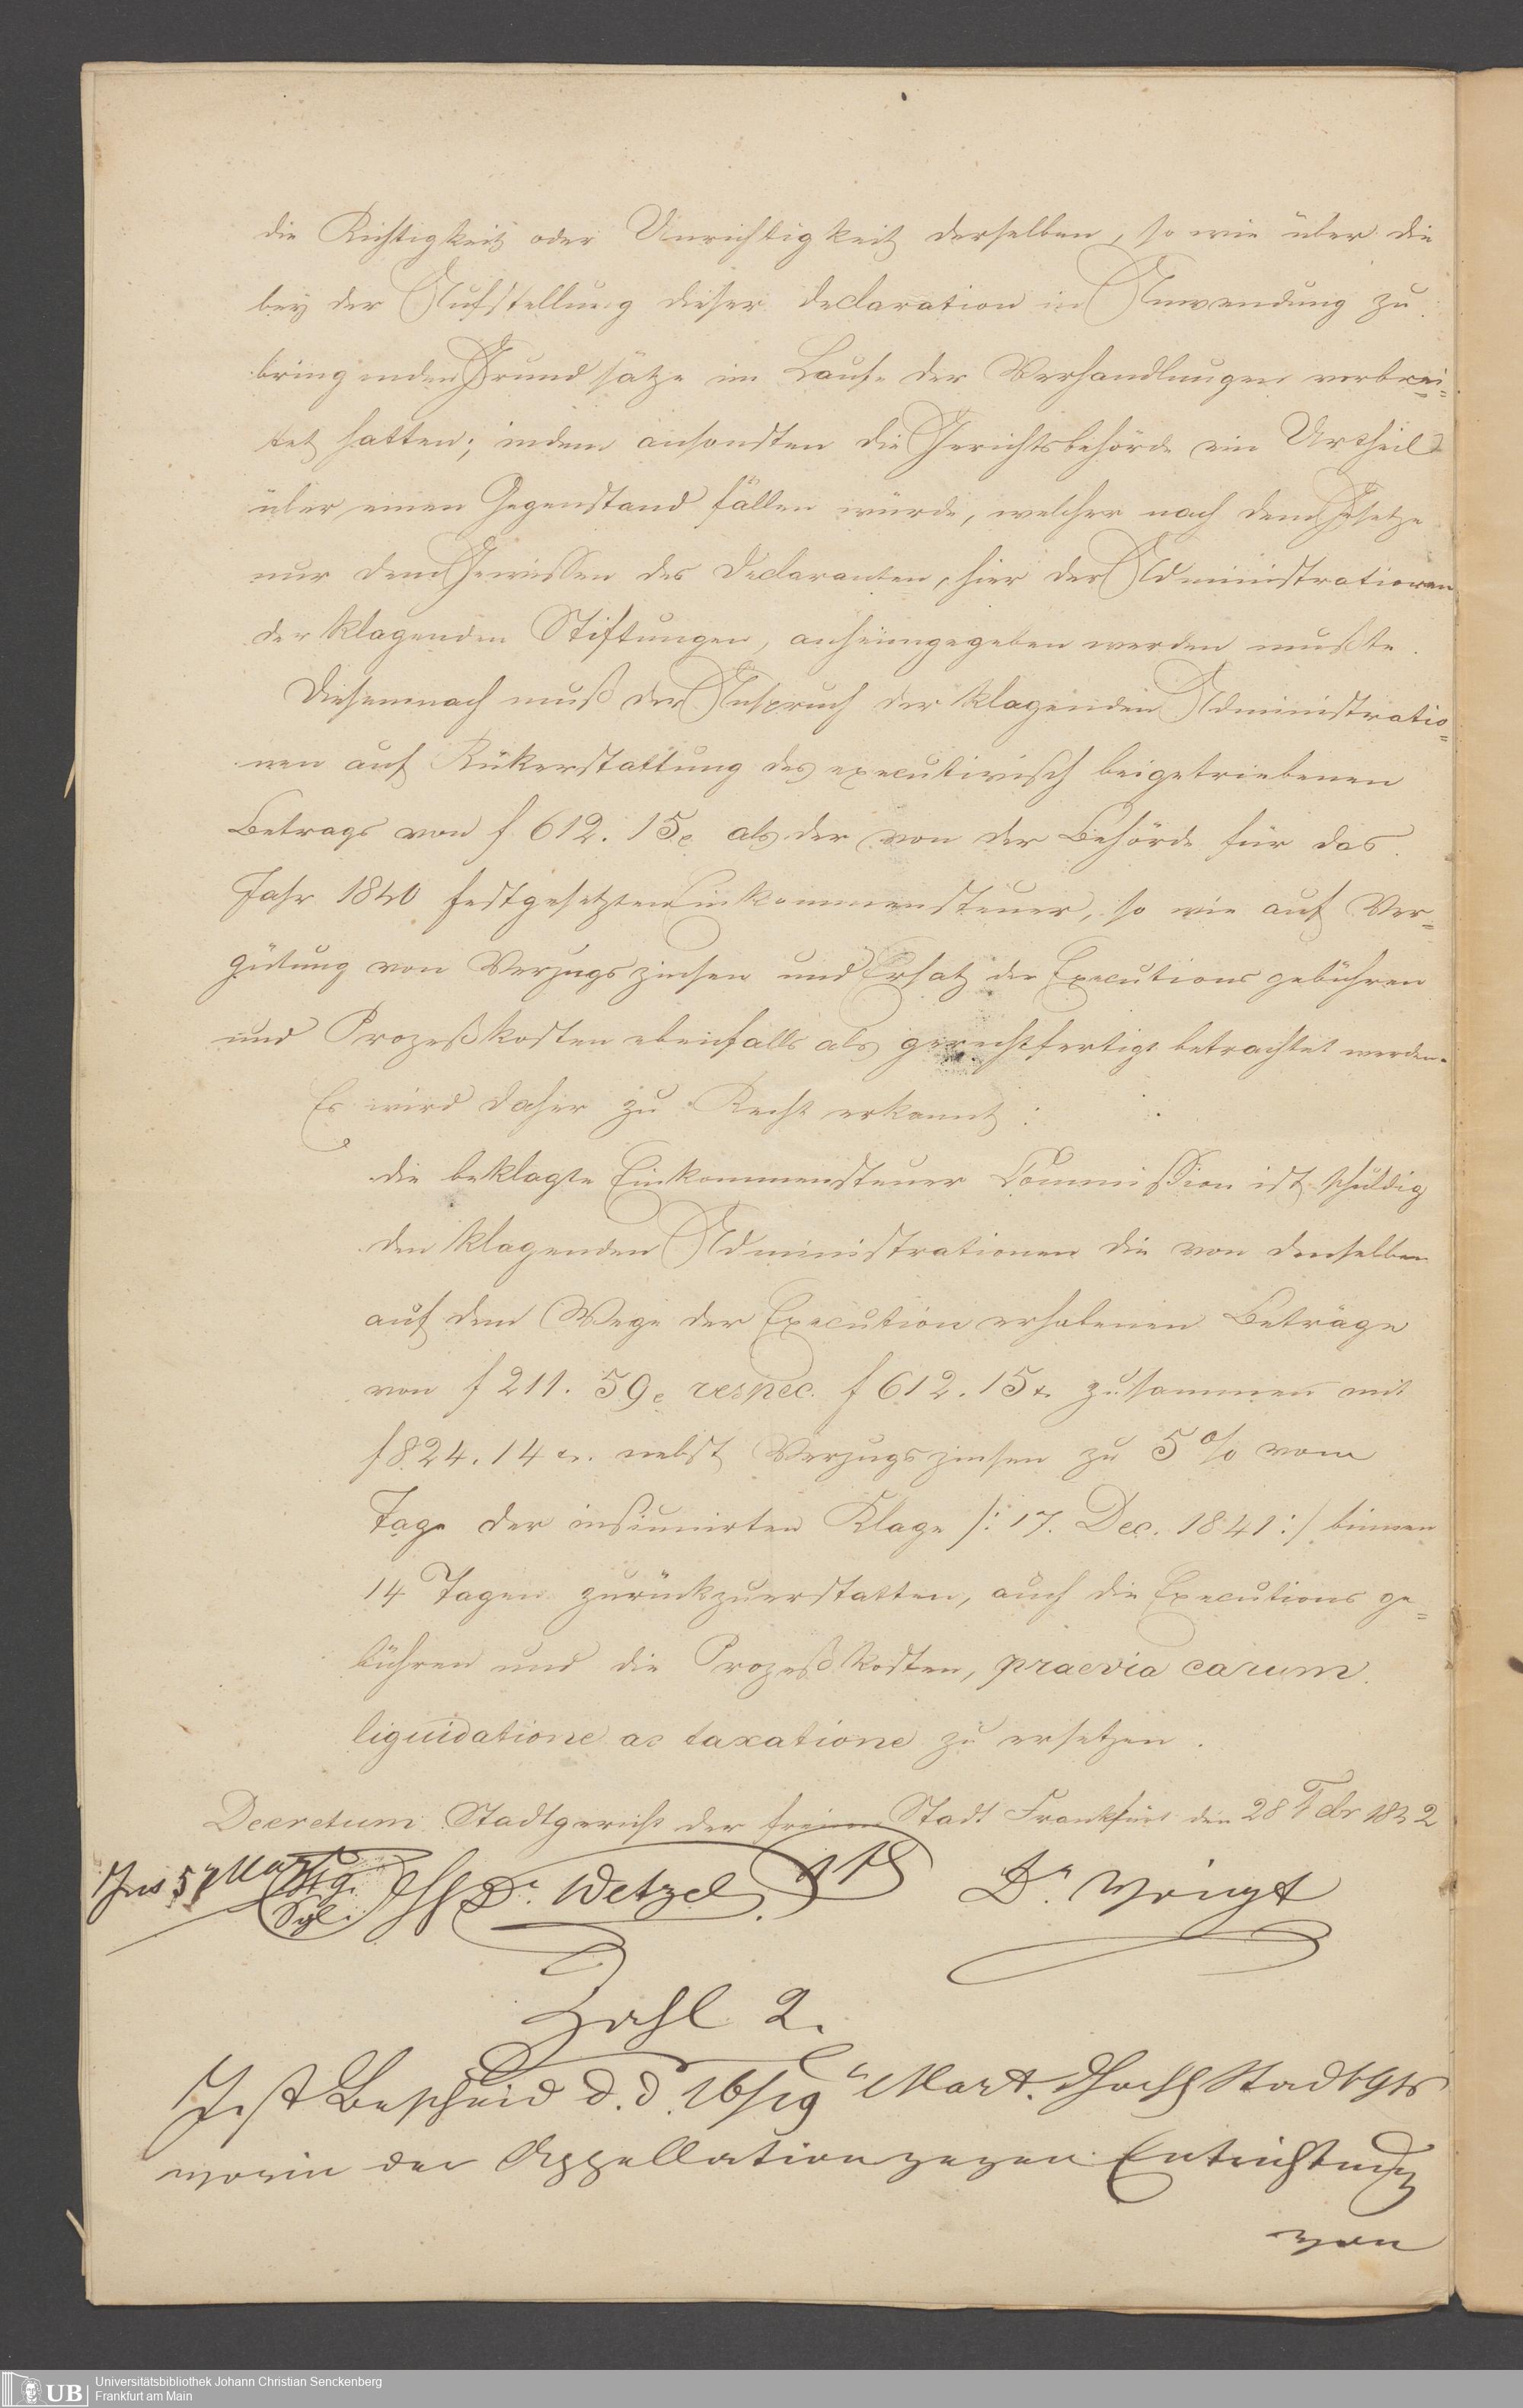 die Richtigkeit oder Unrichtigkeit derselben, so wie über die
bey der Aufstellung dieser Declaration in Anwendung zu
bringenden Grundsätze im Laufe der Verhandlungen verbrei-
tet hatten; indem ansonsten die Gerichtsbehörde ein Urtheil
über einen Gegenstand fällen würde, welcher nach dem Gesetze
nur dem Gewissen des Declaranten, hier der Administrationen
der klagenden Stiftungen, anheimgegeben werden mußte.
Diesemnach muß der Anspruch der klagenden Administratio-
nen auf Rükerstattung des executivisch beigetriebenen
Betrags von f 612. 15 als der von der Behörde für das
Jahr 1840 festgesetzten Einkommensteuer, so wie auf Ver-
gütung von Verzugszinsen und Ersatz der Executionsgebühren
und Prozeßkosten ebenfalls als gerechtfertigt betrachtet werden.
Es wird daher zu Recht erkannt:
die beklagte Einkommensteuer Commission ist schuldig
den klagenden Administrationen die von denselben
auf dem Wege der Execution erhobenen Beträge
von f 211. 59 respec. f 612. 15 x. zusammen mit
f 824. 14 x. nebst Verzugszinsen zu 5% vom
Tage der insinuirten Klage /: 17. Dec. 1841 :/ binnen
14 Tagen zurückzuerstatten, auch die Executionsge-
bühren und die Prozeßkosten, praevia earum
liquidatione ac taxatione zu ersetzen.
Decretum Stadtgericht der freien Stadt Frankfurt den 28 Febr 1842
Dr. Wetzel. Dr. Voigt
Zahl 2.
Ist Bescheid d. d. 16/19 Mart. Stadtgts
worin der Appellation gegen Entrichtung
von
Universitätsbibliothek Johann Christian Senckenberg
Frankfurt am Main
UB